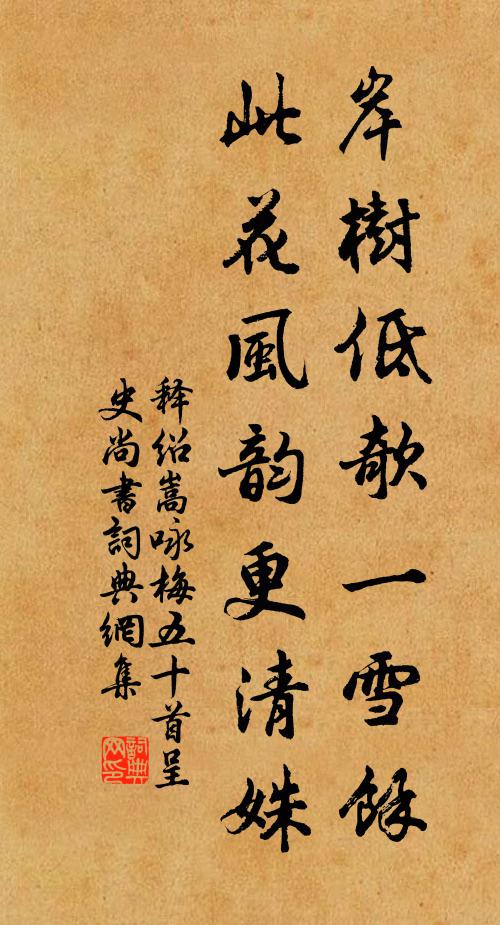 岸樹低欹一雪餘
此花風韵更清姝
释绍嵩咏梅五十首呈
史尚書詞典網集
詞典网印